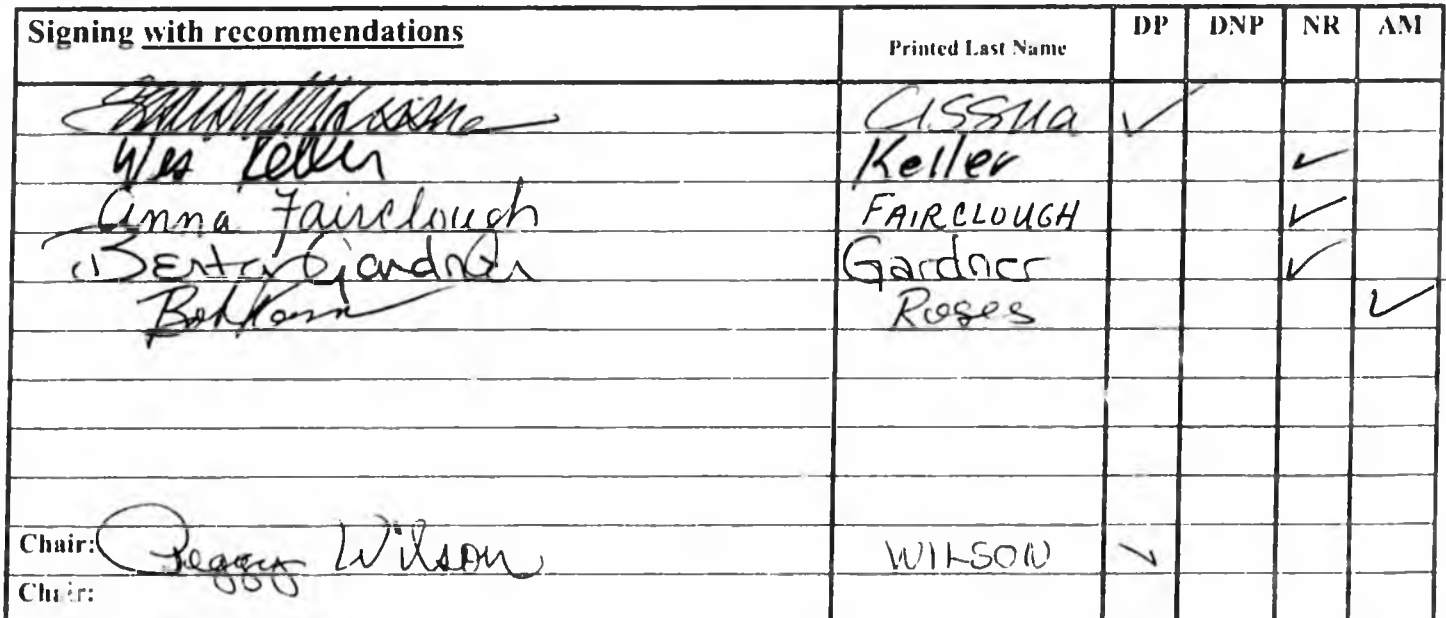 Signing with recommendations Printed Last Name DP DNP NR AM
Cissna ✓
Wes Keller Keller ✓
Anna Fairclough FAIRCLOUGH ✓
Berta Gardner Gardner ✓
Bob Roses ✓
Chair: Peggy Wilson WILSON ✓
Chair: